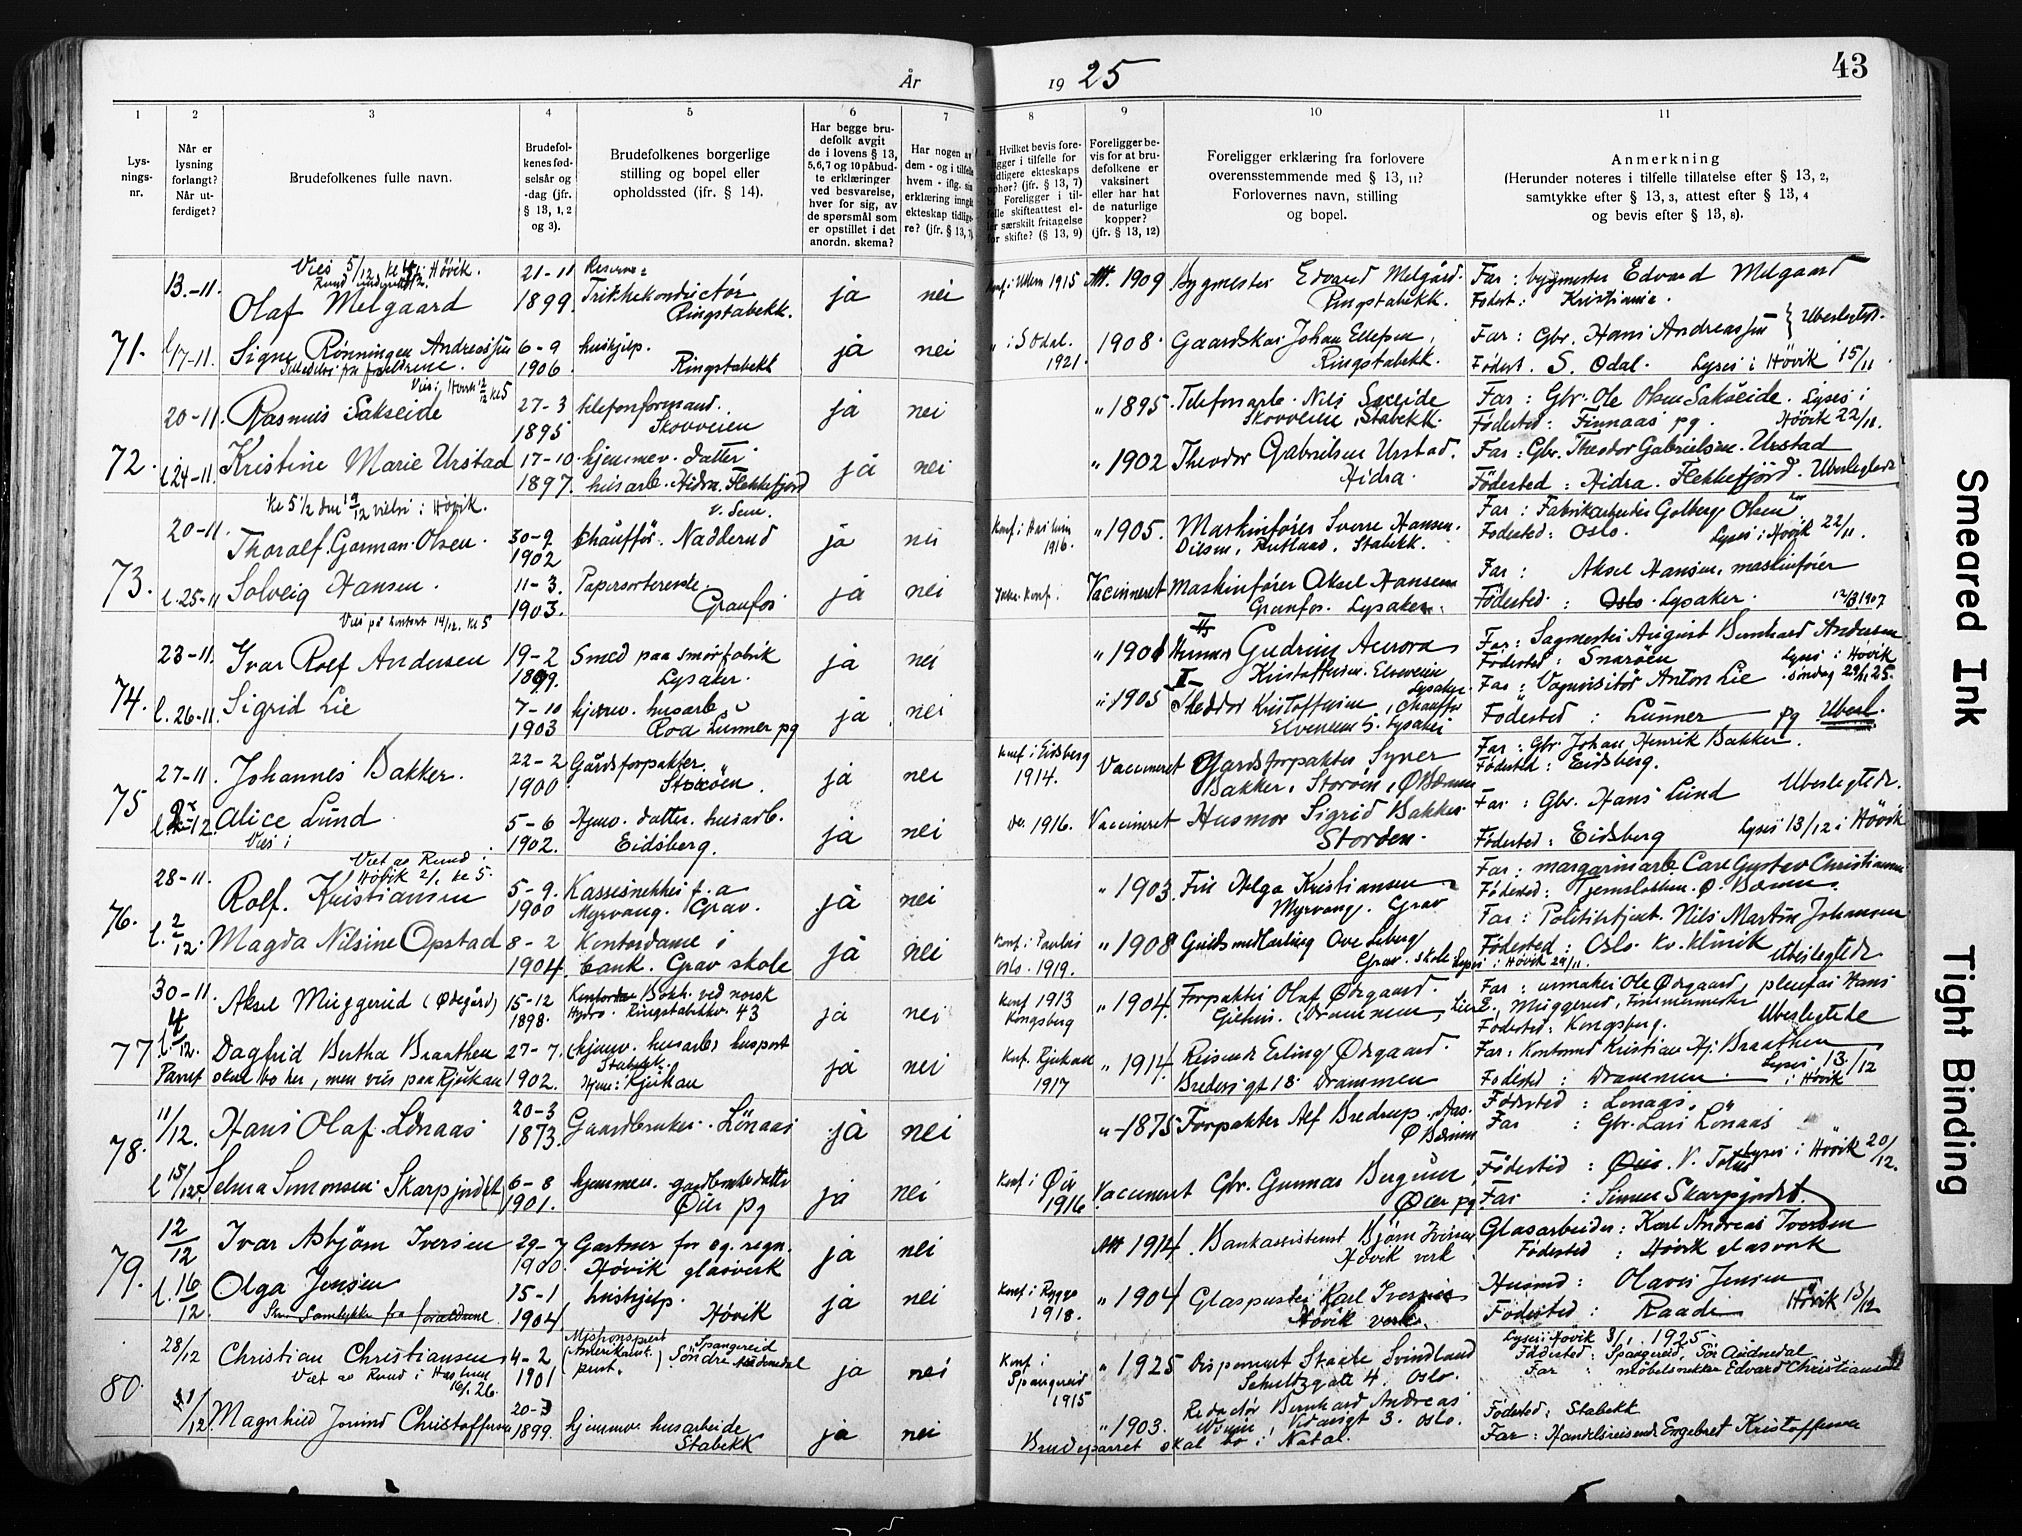 År
1925
43
1
2
3
4
5
6
7
8
9
10
11
Lys-
nings-
nr.
Når er
lysning
forlangt?
Når ut-
ferdiget?
Brudefolkenes fulle navn.
Brudefol-
kenes fød-
selsår og
-dag (jfr.
§ 13, 1, 2
og 3).
Brudefolkenes borgerlige
stilling og bopel eller
opholdssted (jfr. § 14).
Har begge bru-
defolk avgit
de i lovens § 13,
5, 6, 7 og 10 påbud-
te erklæringer
ved besvarelse,
hver for sig, av
de spørsmål som
er opstillet i det
anordn. skema?
Har nogen av
dem - og i tilfelle
hvem - iflg. sin
erklæring inngått
ekteskap tidlige-
re? (jfr. § 13, 7)
a. Hvilket bevis fore-
ligger i tilfelle for
tidligere ekteskaps
ophør? (jfr. § 13, 7)
b. Foreligger i til-
felle skifteattest el-
ler særskilt fritagelse
for skifte? (§ 13, 9)
Foreligger be-
vis for at bru-
defolkene er
vaksinert
eller har hat
de naturlige
kopper?
(jfr. § 13, 12)
Foreligger erklæring fra forlovere
overensstemmende med § 13, 11?
Forlovernes navn, stilling
og bopel.
Anmerkning
(Herunder noteres i tilfelle tillatelse efter § 13, 2,
samtykke efter § 13, 3, attest efter § 13, 4
og bevis efter § 13, 8).
71. 13.-11. Vies 5/12 Høvik.
Olaf Melgaard 21-11 1899. Reserve=
Trikkekonductør Ringstabekk. ja nei 1915 Att. 1909 Bygmester Edvard Melgård.
Ringstabekk. Far: bygmester Edvard Melgaard
Fodest: Kristiania.
l 17-11. Signe Rønningen Andreassen 6-9 1906 hushjelp.
Ringstabekk ja nei i S Odal. 1921. 1908. Gaardskar Johan Ellefsen,
Ringstabekk. Far: Gbr. Hans Andreassen } Ubeslegted.
Fødest. S. Odal. Lyses i Høvik 15/11
72. 20-11. Rasmus Sakseide 27-3 1895 telefonformand.
Skovveien ja nei " 1895. Telefonarb. Nils Sakseide
Skovveien, Stabekk. Far: Gbr. Ole Olsen Sakseide. Lyses i
Fødested: Finnaas pg. Høvik 22/11.
l 24-11. Kristine Marie Urstad 17-10 1897. hjemmev. datter.
husarb. Hidra. Flekkefjord ja nei " 1902 Theodor Gabrielsen Urstad.
Hidra. Far: Gbr. Theodor Gabrielsen Urstad
Fødested: Hidra. Flekkefjord. Ubeslegtede
73. 20-11. Kl 5 1/2 den 19/12 vielse i Høvik.
Thoralf Garman Olsen. 30-9 1902 chauffør. Nadderud ja nei 1916. " 1905. Maskinfører Sverre Hansen.
Stabekk. Far: Fabrikarbeider Golberg Olsen
Fodested: Oslo. Lyses i Høvik 22/11.
l. 25-11 Solveig Hansen. 11-3 1903. Papersorterende.
Granfos ja nei Ikke konf. Vaccineret Maskinfører Aksel Hansen
Granfos. Lysaker. Far: Aksel Hansen, maskinfører
Fødested: Oslo. Lysaker. 12/3 1907
74. 23-11. Vies på kontoret 14/12. kl 5
Ivar Rolf Andersen 19-2 1899. Smed paa smørfabrik
Lysaker. ja nei II Gudrun Aurora
Kristoffersen. Elveveien
Lysaker. Far: Sagmester August Bernhard Andersen
Fødested: Snarøen Lyses i Høvik
l. 26-11. Sigrid Lie 7-10 1903 hjemv. husarb.
Roa Lunner pg ja nei " 1905 I Kristoffersen, Chauffør
Elveveien 5. Lysaker Far: Vognvisitør Anton Lie søndag 29/11 25.
Fødested: Lunner pg Ubesl.
75 27-11. Johannes Bakker. 22-2 1900 Gårdsforpakter.
Storøen. ja nei Konf i Eidsberg 1914. Vaccineret Gardsforpakter Syver
Bakker, Storøen, Ø Bærum Far: Gbr. Johan Henrik Bakker.
Fødested: Eidsberg.
Alice Lund. 5-6 1902. Hjemv. datter. husarb.
Eidsberg. ja nei Do. 1916. Vaccineret Husmor Sigrid Bakker
Storøen. Far: Gbr. Hans Lund Ubeslegtede.
Vies i Fødested: Eidsberg Lyses 13/12 i Høvik
76. 28-11. Viet av Rund i
Høvik 2/1 kl 5.
Rolf. Kristiansen 5-9. 1900 Kassesnekker f.a
Myrvang. Grav. ja nei " 1903. Frk Helga Kristiansen
Myrvang. Grav Far: margarinarb. Carl Gustav Christiansen
l. 2/12. Magda Nilsine Opstad 8-2 1904. Kontordame i
bank. Grav skole ja nei Konf. i Paulus Oslo. 1919. " 1908 Guldsmedlærling
Grav. skole Lyses i Høvik 29/11. Far: Politibetjent. Nils Martin Johansen
Fødested: Oslo. Kv. klinik Ubeslegtede
77 30-11 Aksel Muggerud (Ødegård) 15-12 1898. Bokh. ved norsk
Hydro. Ringstabekkv. 43 ja nei Konf 1913 Kongsberg " 1904. Forpakter Olaf Ødegaard.
Gilhus. (Drammen, Lier Far: urmaker Ole Ødegaard, pleiefar Hans
E. Muggerud, Tømmermester
Fødested: Kongsberg. Ubeslegtede
l. 4/12. Dagfrid Bertha Braathen 27-7. 1902. hjemv. husarb. huspost
Stabekk.
Hjem: Rjukan ja nei Konf. Rjukan 1917 " 1914. Reisende Erling Ødegaard.
Bredersgt 18. Drammen Far: Kontormd Kristian Hj. Braathen
Fødested: Drammen. Lyses 13/12 i Høvik
Parret skal bo her, men vies paa Rjukan
78. 11/12. Hans Olaf Lönaas 20-3 1873. Gaardbruker. Lönaas ja nei " - 1875 Forpakter Alf Bredrup. Aas.
Ø Bærum Fødested: Lonaas,
Far: Gbr. Lars Lönaas
l 15/12 Selma Simonsen Skarpjordet 6-8 1901. hjemmev. gardbrukerdatter
Øier pg ja nei Konf i Øier 1916 Vaccineret Gbr. Gunnar Bergum,
Øier pg Fødested: Øier. V. Toten Lyses i Høvik 20/12.
Far: Simen Skarpjordet.
79. 12/12 Ivar Asbjørn Iversen 29-7 1900. Gartner for eg. regn.
Høvik glasverk ja nei Att 1914. Bankassistent Bjørn Iversen
Høvik verk Glasarbeider: Karl Andreas Iversen
Fødested: Høvik glasverk
l. 16/12 Olga Jensen 15-1 1904. hushjelp.
Høvik ja nei Konf. i Rygge 1918. " 1904 Glaspuster Karl Iversen
Høvik verk. Husmd: Olaves Jensen
Fødested: Raade Høvik 13/12
Skr. Samtykke fra forældrene
80. 28/12 Christian Christiansen 4-2 1901 Misjonsprest
(Amerikansk prest.) Spangereid
Søndre Audnedal ja nei Konf i Spangereid 1915 " 1925 Disponent Svindland
Schultzgate 4. Oslo. Lyses Høvik 3/1. 1925.
Fødested: Spangereid. Sør Audnedal
Far: møbelsnekker Edvard Christiansen
31/12. Magnhild Jorind Christoffersen 20-3 1899. hjemmev. husarbeide
Stabekk ja nei " 1903. Redactør Bernhard Andreas
3. Oslo. Fødested: Stabekk
Far: Handelsreisende Engebret Kristoffersen
Brudeparret skal bo i Natal.
Smeared Ink
Tight Binding